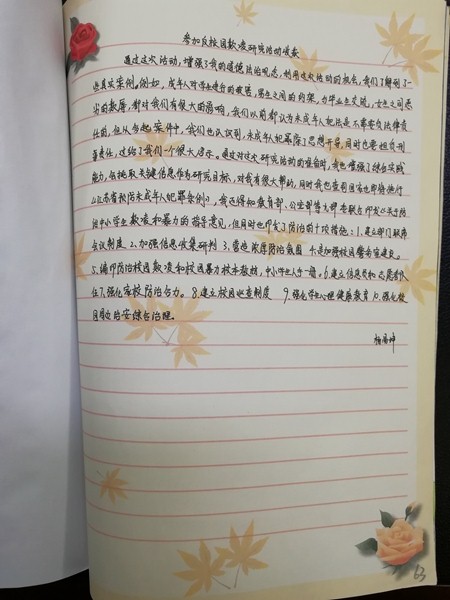 参加反校园欺凌研究活动收获
通过这次活动，增强了我的道德法治观念，利用这次活动的机会，我们了解到了一
些真实案例。例如，成年人对学生造成的
都对我们有很大的影响，我们以前都认为未成年人犯法是不需要负法律责
任的，但从今起案件中，我们也认识到，未成年人犯罪除了思想开导，同时也要担负刑
事责任，这给了我们一个很大启示。通过对这次研究活动的准备时，我也增强了综合实践
能力，包括取关键信息作为研究目标，对我有很大帮助，同时我也查到国家也即将施行
《江苏省预防未成年人犯罪条例》，我还得知教育部、公安部等九部委联合印发
治中小学生欺凌和暴力的指导意见，但同时也印发了防治的十项措施：1.建立部门联席
会议制度 2.加强信息收集研判 3.营造依法防治氛围 4.是加强校园警务室建设。
5.编印防治校园欺凌和校园暴力校本教材，中小学生人手一册。6.建立信息员和志愿者队
伍 7.强化学校防治合力。 8.建立校园巡查制度 9.强化学生心理健康教育 10.强化校
园周边治安综合治理。
63